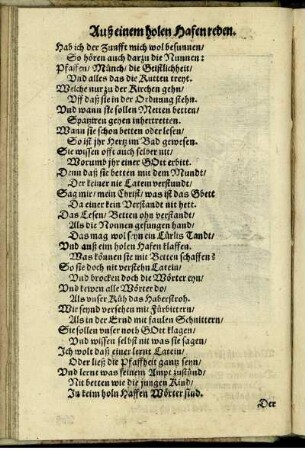 Auß einem holen Hafen reden.
Hab ich der Zunfft mich wol besunnen/
So hören auch darzu die Nunnen:
Pfaffen/ Münch/ die Geistlichheit/
Vnd alles das die Kutten treyt.
Welche nur zu der Kirchen gehn/
Vff daß sie in der Ordnung stehn.
Vnd wann sie sollen Metten betten/
Spatziren gehen inhertretten.
Wann sie schon betten oder lesen/
So ist jhr Hertz im Bad gewesen.
Sie wissen offt auch selber nit/
Worumb jhr einer GOtt erbitt.
Denn daß sie betten mit dem Mundt/
Der keiner nie Latein verstundt/
Sag mir/ mein Christ/ was ist das Gbett
Da einer kein Verstande nit hett.
Das Lesen/ Betten ohn verstandt/
Als die Nonnen gesungen hand/
Das mag wol seyn ein Tandt/
Vnd auß eim holen Hafen klaffen.
Was können sie mit Betten schaffen?
So sie doch nit verstehn Latein/
Vnd brocken doch die Wörter eyn/
Vnd kewen alle Wörter do/
Als vnser Küh das Haberstroh.
Wir seynd versehen mit Fürbittern/
Als in der Ernd mit faulen Schnittern/
Sie sollen vnser noth GOtt klagen/
Vnd wissen selbst nit was sie sagen/
Ich wolt daß einer lernt Latein/
Oder ließ die Pfaffheit gantz seyn/
Vnd lernt was seinem Ampt zustünd/
Nit betten wie die jungen Kind/
In keim holn Haffen Wörter sind.
Der